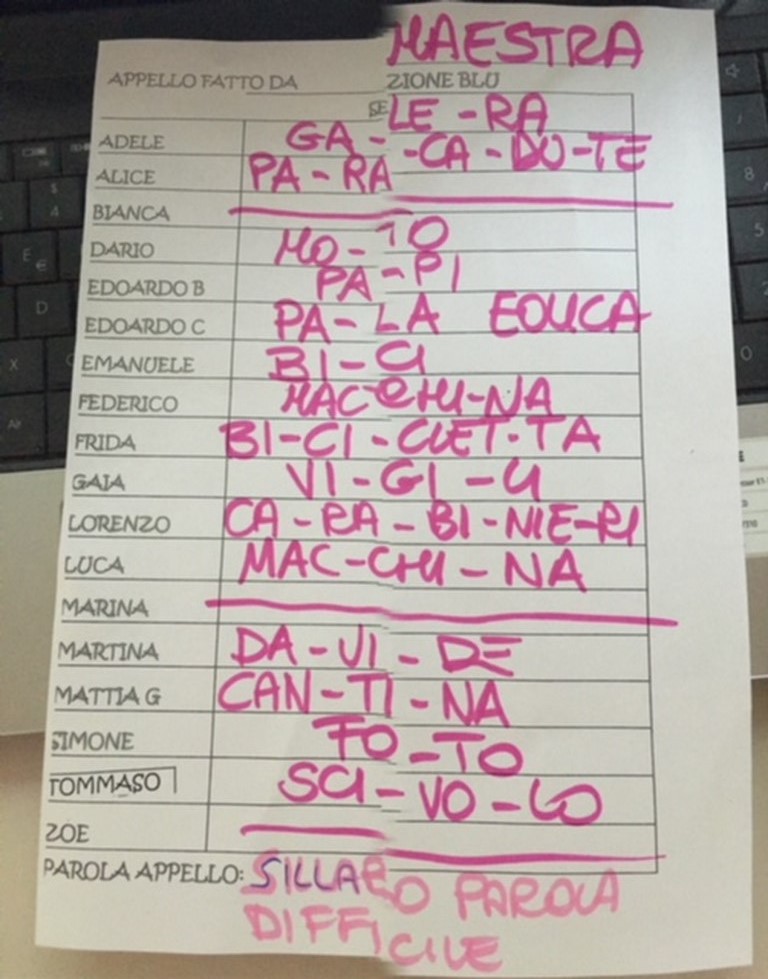 MAESTRA
APPELLO FATTO DA ZIONE BLU
SE
ADELE GA - LE - RA
ALICE PA - RA - CA - DU - TE
BIANCA
DARIO MO - TO
EDOARDO B PA - PI
EDOARDO C PA - LA EDUCA
EMANUELE BI - CI
FEDERICO MAC CHI - NA
FRIDA BI - CI - CLET - TA
GAIA VI - GI - LI
LORENZO CA - RA - BI - NIE - RI
LUCA MAC - CHI - NA
MARINA
MARTINA DA - VI - DE
MATTIA G CAN - TI - NA
SIMONE FO - TO
TOMMASO SCI - VO - LO
ZOE
PAROLA APPELLO: SILLABO PAROLA
DIFFICILE